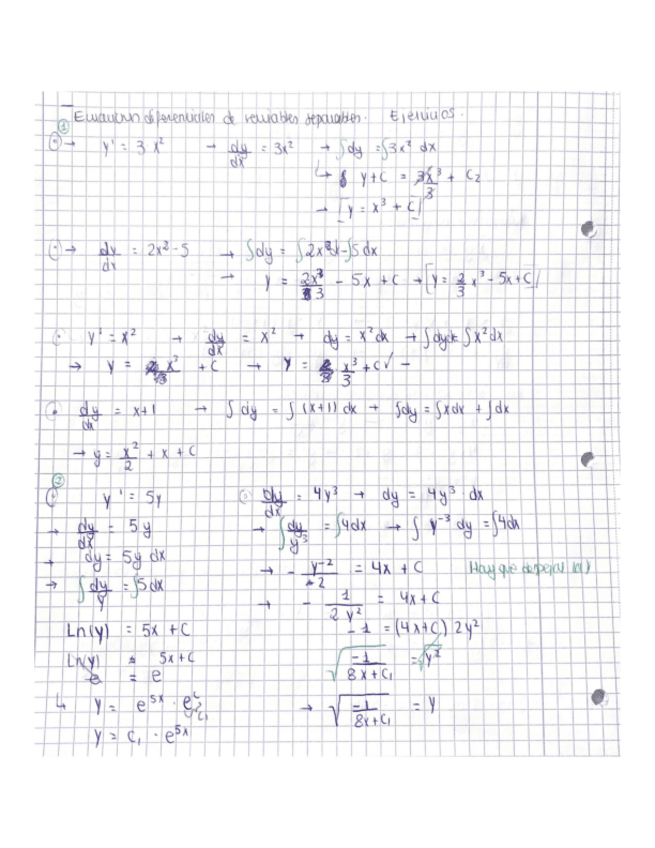 Ecuaciones diferenciales de variables separables. Ejercicios.
①
→ y' = 3x² → dy/dx = 3x² → ∫dy = ∫3x² dx
↳ y + C = 3x³/3 + C₂
→ [y = x³ + C]
→ dy/dx = 2x² - 5 → ∫dy = ∫2x² dx - ∫5 dx
→ y = 2x³/3 - 5x + C → [y = 2/3 x³ - 5x + C]
y' = x² → dy/dx = x² → dy = x² dx → ∫dy = ∫x² dx
→ y = x³/3 + C → y = x³/3 + C ✓ -
dy/dx = x+1 → ∫dy = ∫(x+1) dx → ∫dy = ∫x dx + ∫dx
→ y = x²/2 + x + C
②
y' = 5y
→ dy/dx = 5y
→ dy = 5y dx
→ ∫dy/y = ∫5dx
Ln(y) = 5x + C
e^Ln(y) = e^5x+C
↳ y = e^5x · e^C C₁
y = C₁ · e^5x
dy/dx = 4y³ → dy = 4y³ · dx
→ ∫dy/y³ = ∫4dx → ∫y⁻³ dy = ∫4dx
→ - y⁻²/2 = 4x + C Hay que despejar la y
→ - 1/2y² = 4x + C
-1 = (4x+C) 2y²
√(-1/8x+C₁) = √y²
→ √(-1/8x+C₁) = y